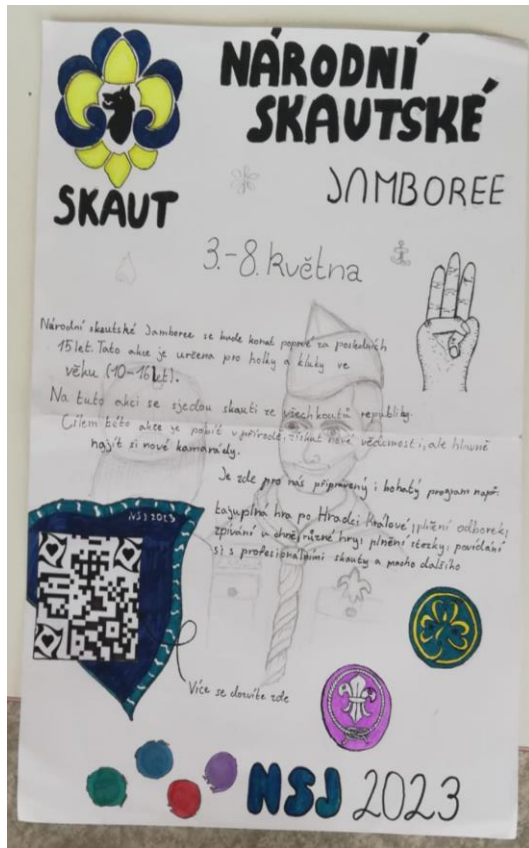 NÁRODNÍ
SKAUTSKÉ
JAMBOREE
SKAUT
3.-8. května
Národní skautské Jamboree se bude konat poprvé za posledních
15 let. Tato akce je určena pro holky a kluky ve
věku (10-16 let).
Na tuto akci se sjedou skauti ze všech koutů republiky.
Cílem této akce je pobít v přírodě, získat nové vědomosti, ale hlavně
najít si nové kamarády.
Je zde pro nás připravený i bohatý program např:
tajuplná hra po Hradci Králové, plnění odborek,
zpívání, různé hry, plnění stezky, povídání
si s profesionálními skauty a mnoho dalšího
NSJ 2023
Více se dozvíte zde
NSJ 2023